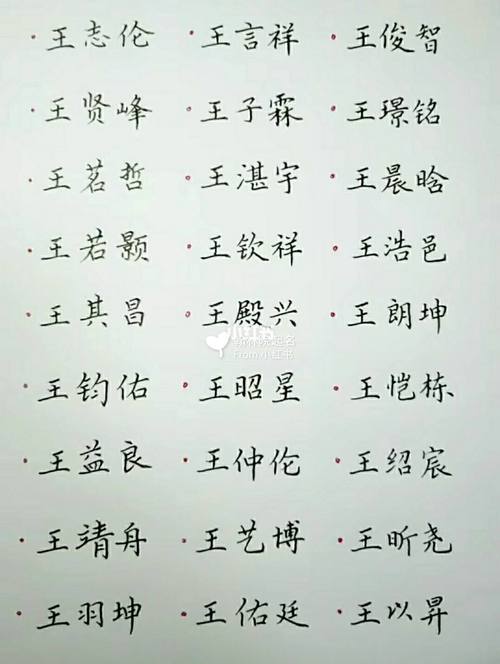 ·王志伦 ·王言祥 ·王俊智
·王贤峰 ·王子霖 ·王璟铭
·王茗哲 ·王湛宇 ·王晨晗
·王若颢 ·王钦祥 ·王浩邑
·王其昌 ·王殿兴 ·王朗坤
小红书
From小红书
·王钧佑 ·王昭星 ·王恺栋
·王益良 ·王仲伦 ·王绍宸
·王靖舟 ·王艺博 ·王昕尧
·王羽坤 ·王佑廷 ·王以昇